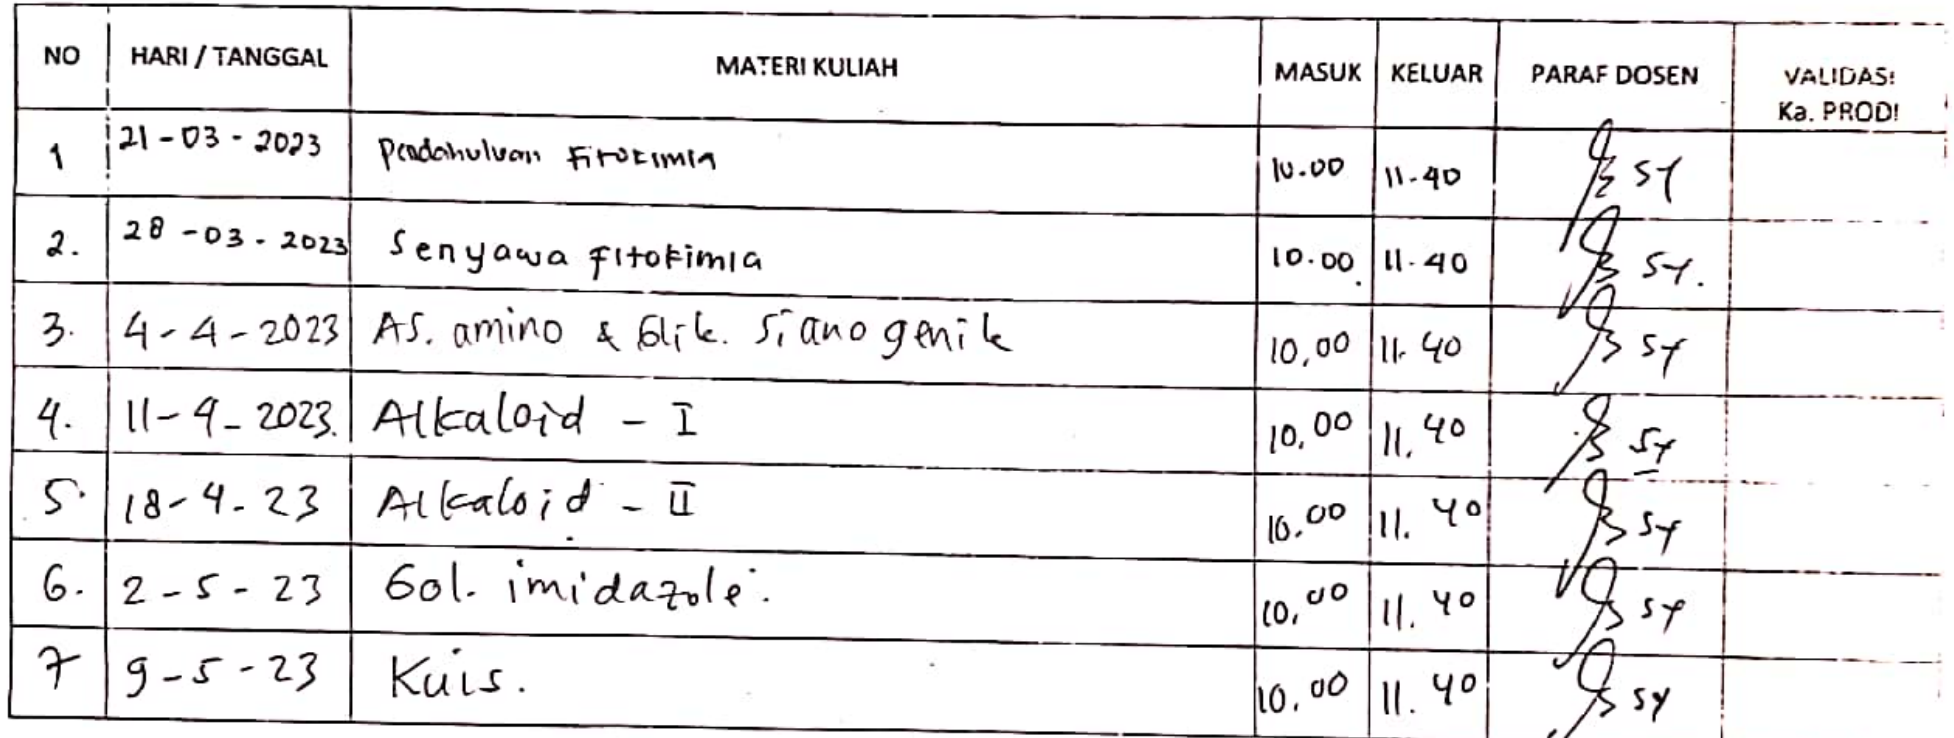 NO HARI / TANGGAL MATERI KULIAH MASUK KELUAR PARAF DOSEN VALIDASI
Ka. PRODI
1 21-03-2023 Pendahuluan Fitokimia 10.00 11.40 SY
2. 28-03-2023 Senyawa Fitokimia 10.00 11.40 SY.
3. 4-4-2023 AS. amino & Glik. Sianogenik 10,00 11.40 SY
4. 11-4-2023. Alkaloid - I 10,00 11.40 SY
5. 18-4-23 Alkaloid - II 10.00 11.40 SY
6. 2-5-23 Gol. imidazole. 10,00 11.40 SY
7 9-5-23 Kuis. 10,00 11.40 SY